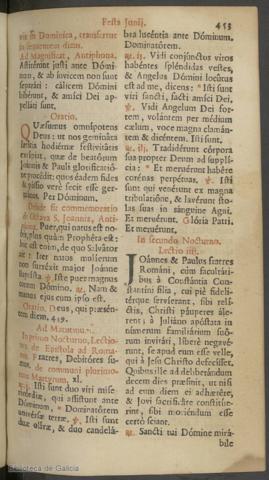 Festa Junij. 453
vis in Dominica, transfertur
in sequentem diem.
Ad Magnificat, Antiphona.
Astiterunt justi ante Dómi-
num, & ab ínvicem non sunt
separáti: cálicem Dómini
bibérunt, & amíci Dei ap-
pelláti sunt.
Oratio.
Quæsumus omnípotens
Deus: ut nos gemináta
lætítia hodiérnæ festivitátis
excípiat, quæ de beatórum
Joánnis & Pauli glorificatió-
ne procédit: quos éadem fides
& pássio verè fecit esse ger-
mános. Per Dóminum.
Deinde fit commemoratio
de Octava S. Joannis, Anti-
Puer, qui natus est no-
bis, plus quàm Prophéta est:
hic est enim, de quo Salvátor
ait: Inter natos mulíerum
non surréxit major Joánne
Baptísta. ℣. Iste puer magnus
coram Dómino. ℟. Nam &
manus ejus cum ipso est.
Oratio. Deus, qui præsén-
tem diem, 439.
Ad Matutinum.
In primo Nocturno, Lectio-
nes de Epistola ad Roma-
nos, Fratres, Debitóres su-
de communi plurimo-
rum Martyrum. xl.
℟. j. Isti sunt duo viri mise-
ricórdiæ, qui assístunt ante
Dóminum, * Dominatórem
univérsæ terræ. ℣. Isti sunt
duæ olívæ, & duo candelá-
bra lucéntia ante Dóminum.
Dominatórem.
℟. ij. Vidi conjúnctos viros
habéntes spléndidas vestes,
& Angelus Dómini locútus
est ad me, dicens: * Isti sunt
viri sancti, facti amíci Dei,
℣. Vidi Angelum Dei for-
tem, volántem per médium
cælum, voce magna clamán-
tem & dicéntem. Isti sunt.
℟. iij. Tradidérunt córpora
sua propter Deum ad supplí-
cia: * Et meruérunt habére
corónas perpétuas. ℣. Isti
sunt qui venérunt ex magna
tribulatióne, & lavérunt sto-
las suas in sánguine Agni.
Et meruérunt. Glória Patri.
Et meruérunt.
In secundo Nocturno.
Lectio iiij.
Joánnes & Paulus fratres
Románi, cùm facultáti-
bus à Constántia Con-
stantíni fília, cui piè fidelí-
térque servíerant, sibi relí-
ctis, Christi páuperes ále-
rent: à Juliáno apóstata in
númerum familiárium suó-
rum invitári, líberè negavé-
runt, se apud eum esse velle,
qui à Jesu Christo defecísset.
Quibus ille ad deliberándum
decem dies præsínit, ut nisi
ad eum diem ei adhærére,
& Jovi sacrificáre constítue-
rint, sibi moriéndum esse
certò sciant.
℟. Sancti tui Dómine mirá-
bile
Biblioteca de Galicia